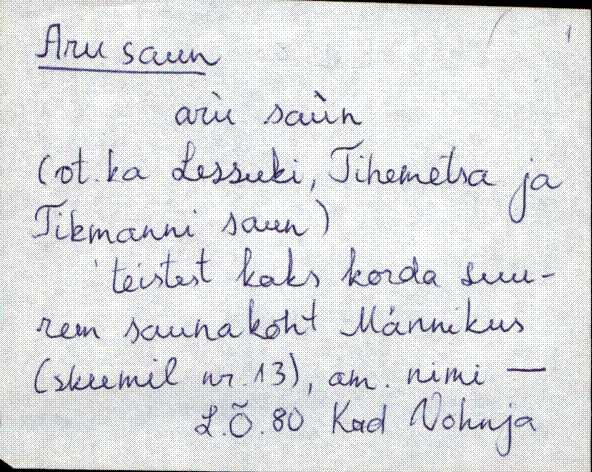 Aru saun
1
arù saùn
(vt. ka Lessuki, Tihemetsa ja
Tikmanni saun)
'teistest kaks korda suu-
rem saunakoht Männikus
(skeemil nr. 13), am. nimi —
L.Õ.80 Kad Vohnja